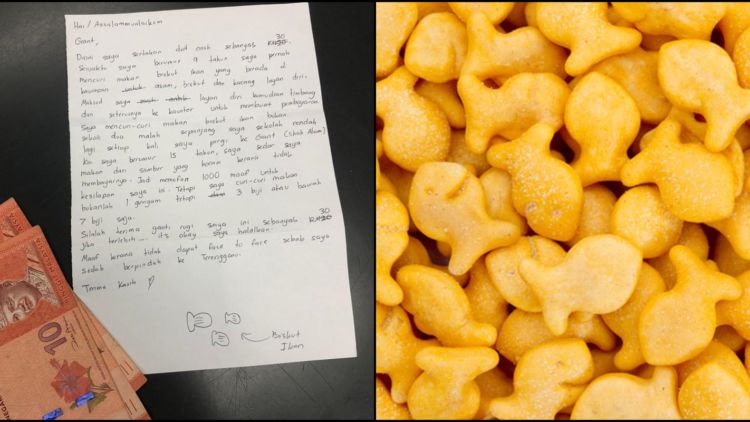 Hai / Assalammualaikum
Giant,
Disini saya sertakan duit cash sebanyak 30
Semasa saya berumur 9 tahun saya pernah
mencuri makan biskut ikan yang berada di
kawasan asam, biskut dan kacang layan diri.
Maksud saya layan diri kemudian timbang
dan seterusnya ke kaunter untuk membuat pembayaran
Saya mencuri-curi makan biskut ikan bukan
sekali dua malah sepanjang saya sekolah rendah,
lagi setiap kali saya pergi ke Giant (Shah Alam)
Kini saya berumur 15 tahun, saya sedar saya
makan dari sumber yang haram kerana tidak
membayarnya. Jadi memohon 1000 maaf untuk
kesilapan saya ini. Tetapi saya curi-curi makan
bukanlah 1 gengam tetapi 3 biji atau bawah
7 biji saja.
Silalah terima ganti rugi saya ini sebanyak 30
jika terlebih ... its okay saya halalkan.
Maaf kerana tidak dapat face to face sebab saya
sudah berpindah ke Terengganu.
Terima Kasih
Biskut
Ikan
10